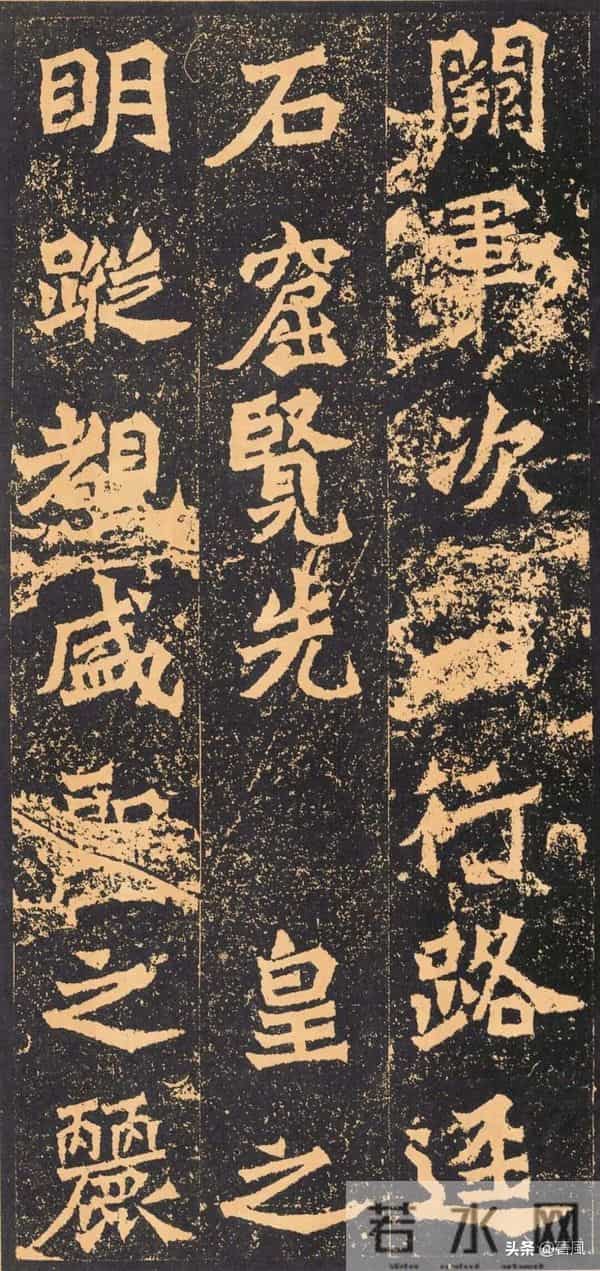 闕軍次行路逕
石窟覽先皇之
明蹤覩盛聖之麗
若水网
头条